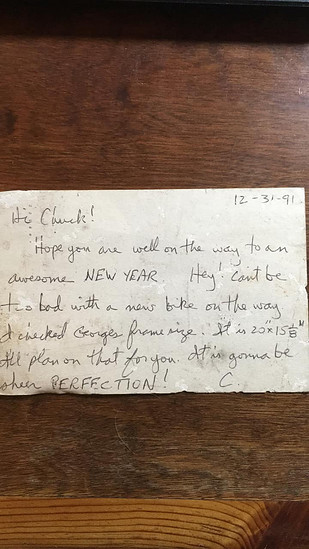 12-31-91
Hi Chuck!
Hope you are well on the way to an
awesome NEW YEAR Hey! Cant be
too bad with a new bike on the way
I checked Georges frame size. It is 20"x15
I'll plan on that for you. It is gonna be
sheer PERFECTION! C.